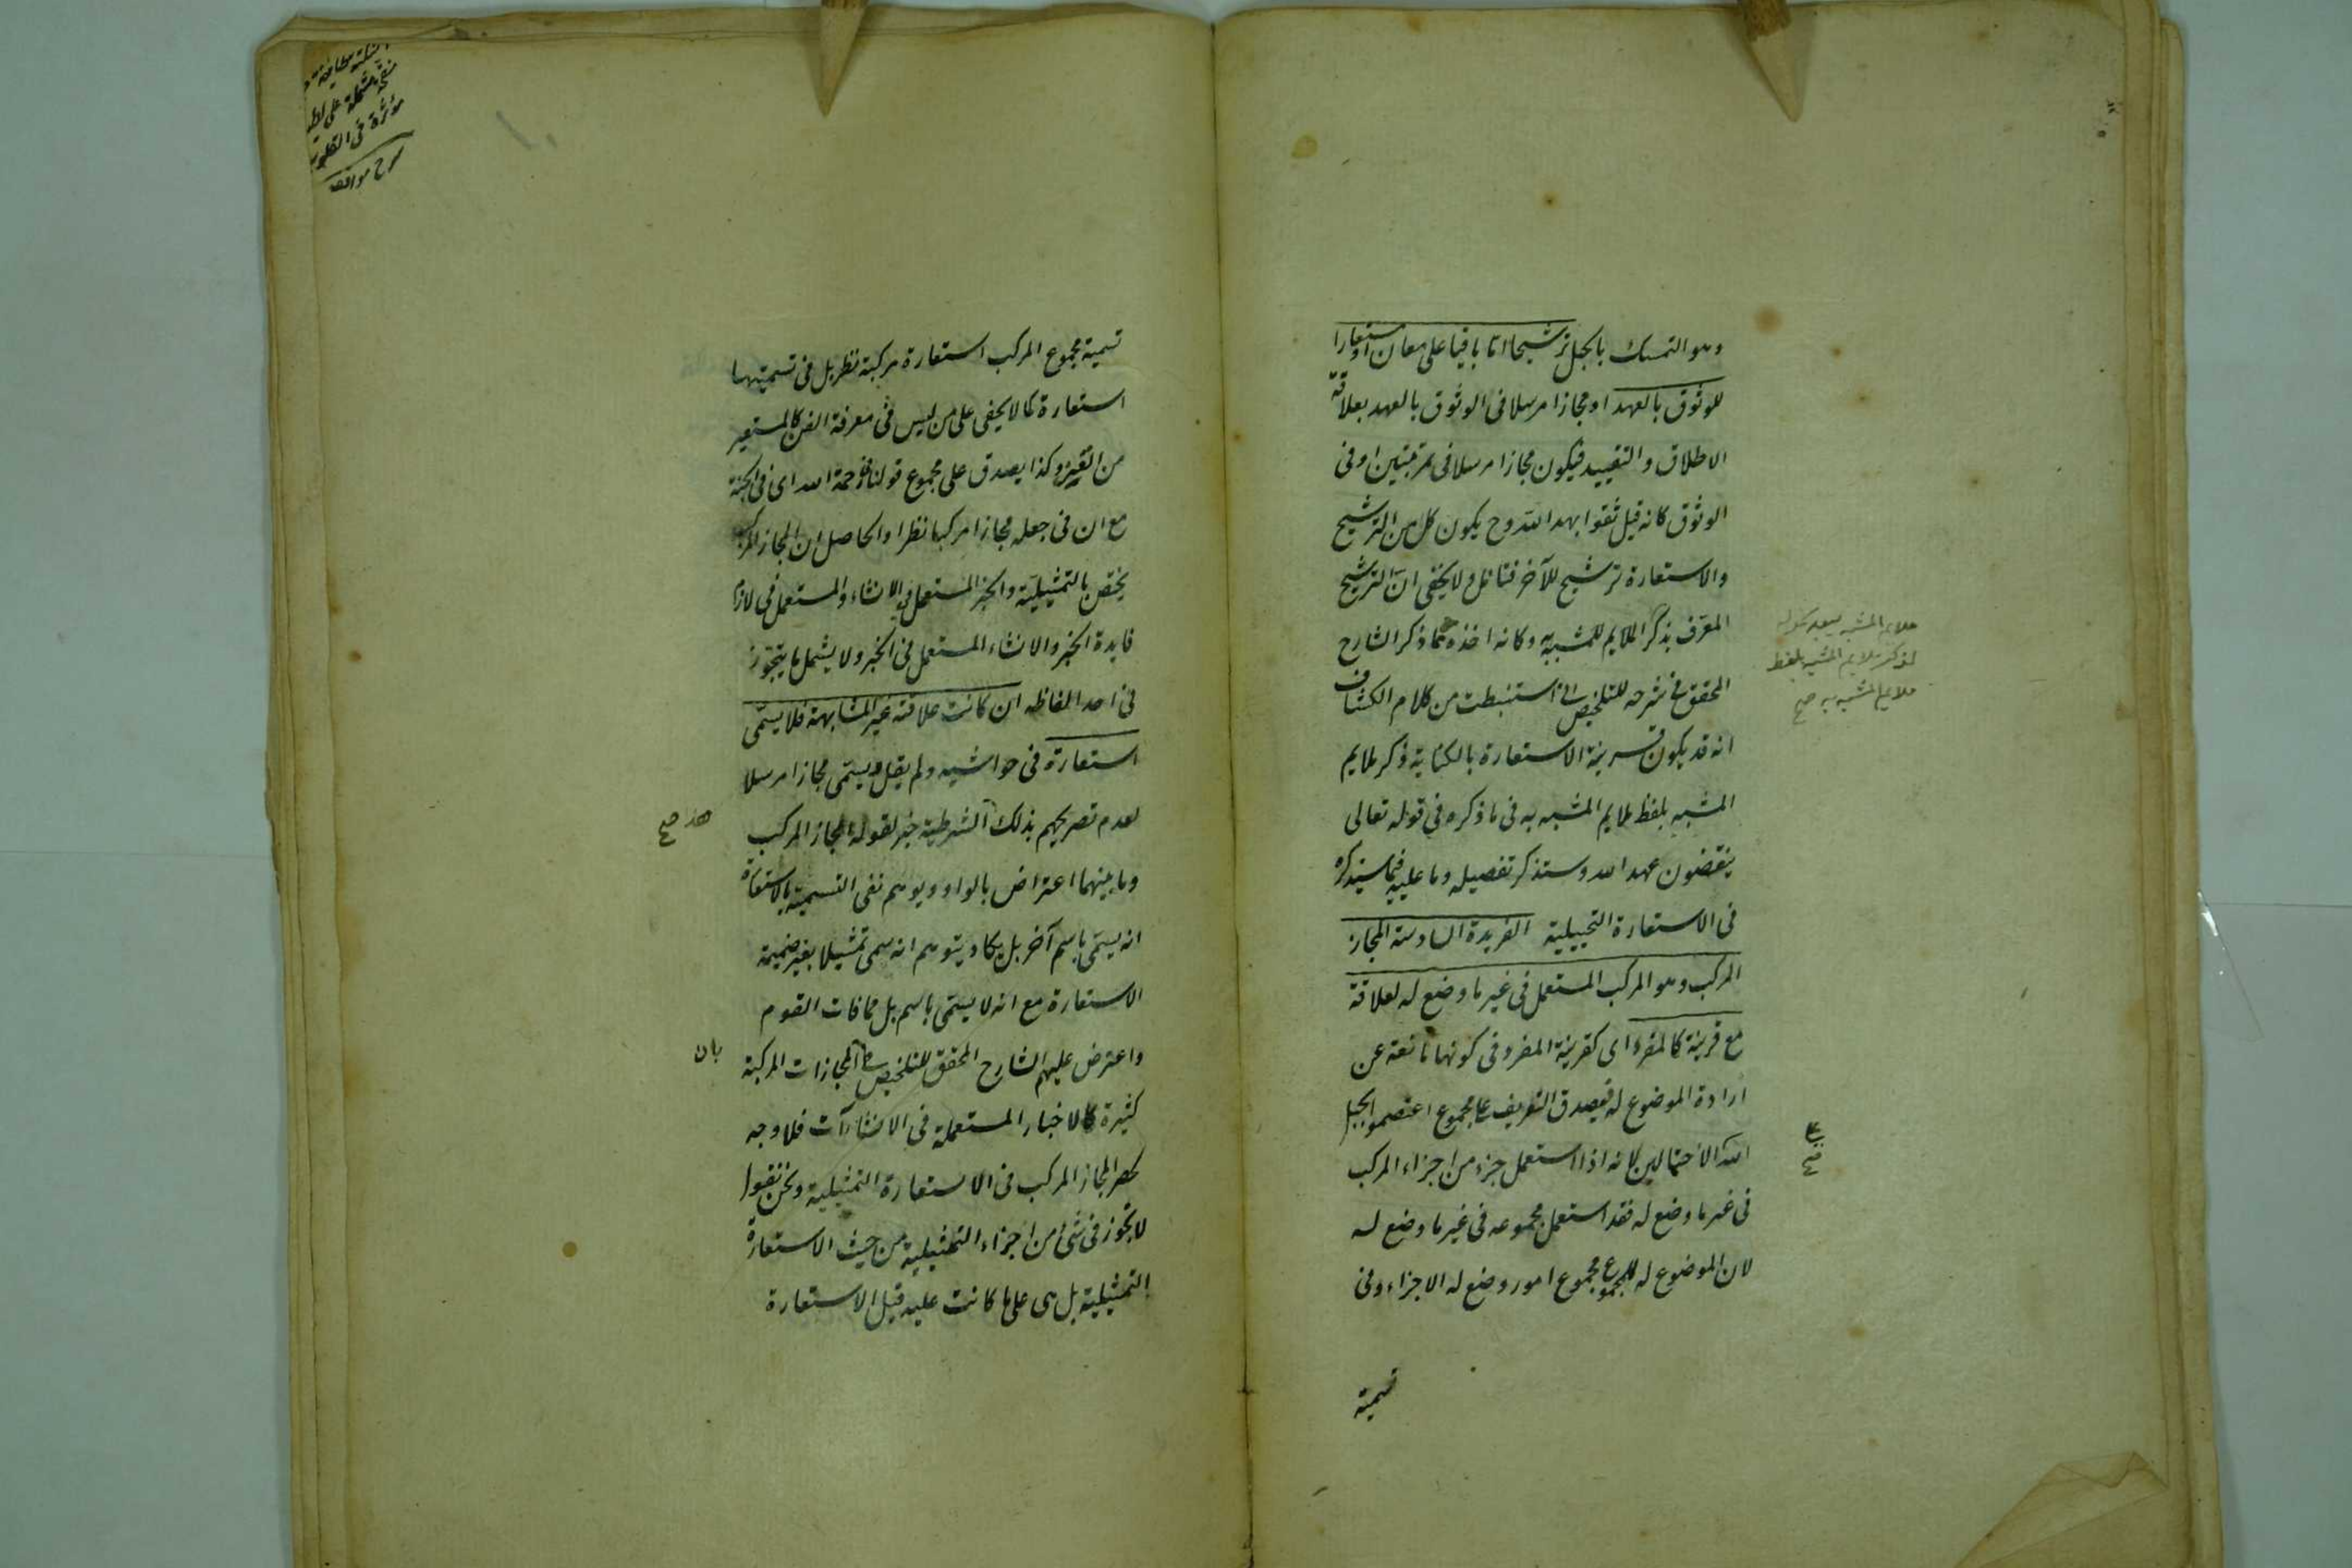 وهو التمسك بالحبل ترشيحا اما باقيا على معناه او مستعارا
للوثوق بالعهد او مجازا مرسلا فى الوثوق بالعهد بعلاقة
الاطلاق والتقييد فيكون مجازا مرسلا فى مرتبتين او فى
الوثوق كانه قيل ثقوا بعهد الله وح يكون كل من الترشيح
والاستعارة ترشيح للآخر فتامل ولا يخفى ان الترشيح
المعرف بذكر الملايم للمشبه به وكانه اخذه مما ذكر الشارح
المحقق فى شرحه للتلخيص انى استنبطت من كلام الكشاف
انه قد يكون قرينة الاستعارة بالكناية ذكر ملايم
المشبه بلفظ ملايم المشبه به فى ما ذكره فى قوله تعالى
ينقضون عهد الله وستذكر تفصيله وما عليه فيما سيذكره
فى الاستعارة التخييلية الفريدة السادسة المجاز
المركب وهو المركب المستعمل فى غير ما وضع له لعلاقة
مع قرينة كالمفرد اى كقرينة المفرد فى كونها مانعة عن
ارادة الموضوع له فيصدق التعريف على مجموع اعتصموا بحبل
الله الاحتمالين لانه اذا استعمل جزء من اجزاء المركب
فى غير ما وضع له فقد استعمل مجموعه فى غير ما وضع له
لان الموضوع له للمجموع مجموع امور وضع له الاجزاء وفى
تسمية
ملايم المشبه
لذكر ملايم المشبه بلفظ
ملايم المشبه به صح
صح
تسمية مجموع المركب استعارة مركبة نظر بل فى تسميتها
استعارة كما لا يخفى على من ليس فى معرفة الفن كالمستعير
من الغير وكذا يصدق على مجموع قولنا فى رحمة الله اى فى الجنة
مع ان فى جعله مجازا مركبا نظرا والحاصل ان المجاز المركب
يختص بالتمثيلية والخبر المستعمل فى الانشاء والمستعمل فى لازم
فايدة الخبر والانشاء المستعمل فى الخبر ولا يشمل ما يتجوز
فى احد الفاظه ان كانت علاقته غير المشابهة فلا يسمى
استعارة فى حواشيه ولم يقل ويسمى مجازا مرسلا
لعدم تصريحهم بذلك الشرطية خبر لقوله المجاز المركب
وما بينهما اعتراض بالواو ويوهم نفى التسمية بالاستعارة
انه يسمى باسم آخر بل يكاد يتوهم انه سمى تمثيلا بغير ضميمة
الاستعارة مع انه لا يسمى باسم بل مما فات القوم
واعترض عليهم الشارح المحقق للتلخيص المجازات المركبة
كثيرة كالاخبار المستعملة فى الانشاآت فلا وجه
لحصر المجاز المركب فى الاستعارة التمثيلية ونحن نقول
لا تجوز فى شئ من اجزاء التمثيلية من حيث الاستعارة
التمثيلية بل هى على ما كانت عليه قبل الاستعارة
هذ صح
بان
مؤثرة فى القلوب
شرح مواقف